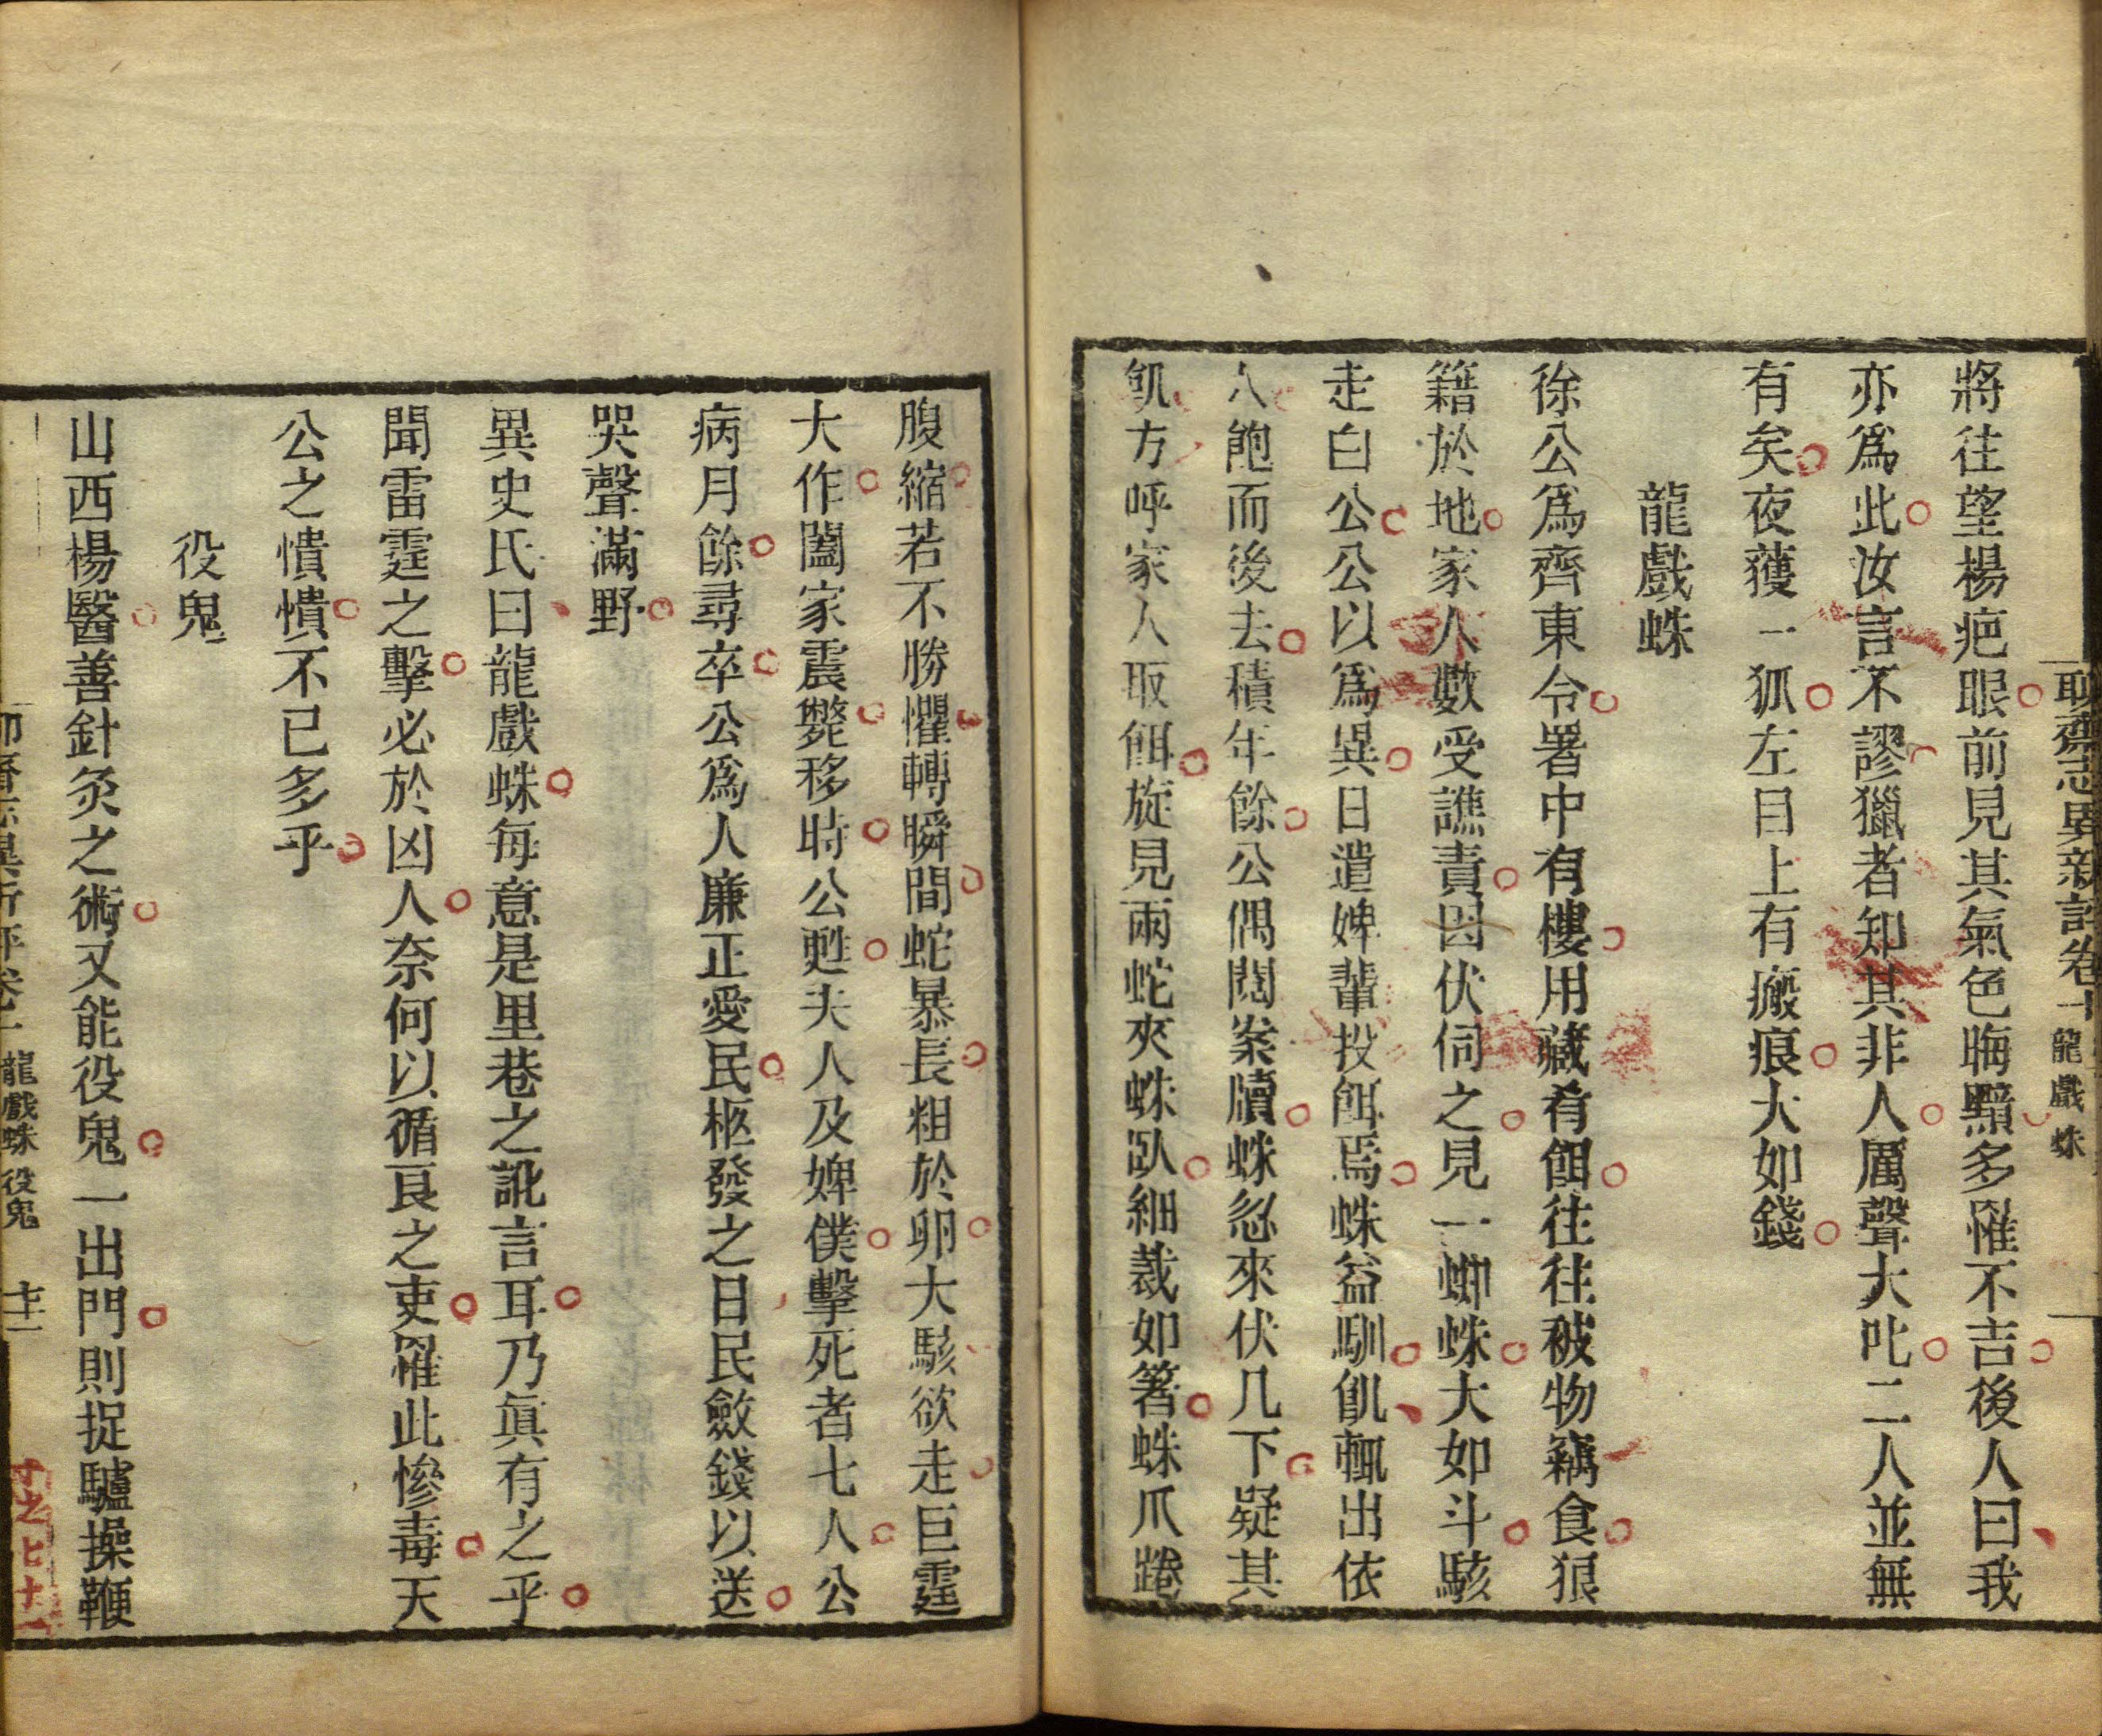 聊齋志異新評卷十　龍戲蛛
將往望楊疤眼前見其氣色晦黯多罹不吉後人曰我
亦爲此汝言不謬獵者知其非人厲聲大叱二人並無
有矣夜獲一狐左目上有瘢痕大如錢
龍戲蛛
徐公爲齊東令署中有樓用藏肴餌往往被物竊食狼
籍於地家人數受譙責因伏伺之見一蜘蛛大如斗駭
走白公公以爲異日遣婢輩投餌焉蛛益馴飢輒出依
人飽而後去積年餘公偶閱案牘蛛忽來伏几下疑其
飢方呼家人取餌旋見兩蛇夾蛛臥細裁如箸蛛爪踡
腹縮若不勝懼轉瞬間蛇暴長粗於卵大駭欲走巨霆
大作闔家震斃移時公甦夫人及婢僕擊死者七人公
病月餘尋卒公爲人廉正愛民柩發之日民斂錢以送
哭聲滿野
異史氏曰龍戲蛛每意是里巷之訛言耳乃眞有之乎
聞雷霆之擊必於凶人奈何以循良之吏罹此慘毒天
公之憒憒不已多乎
役鬼
山西楊醫善針灸之術又能役鬼一出門則捉驢操鞭
龍戲蛛　役鬼